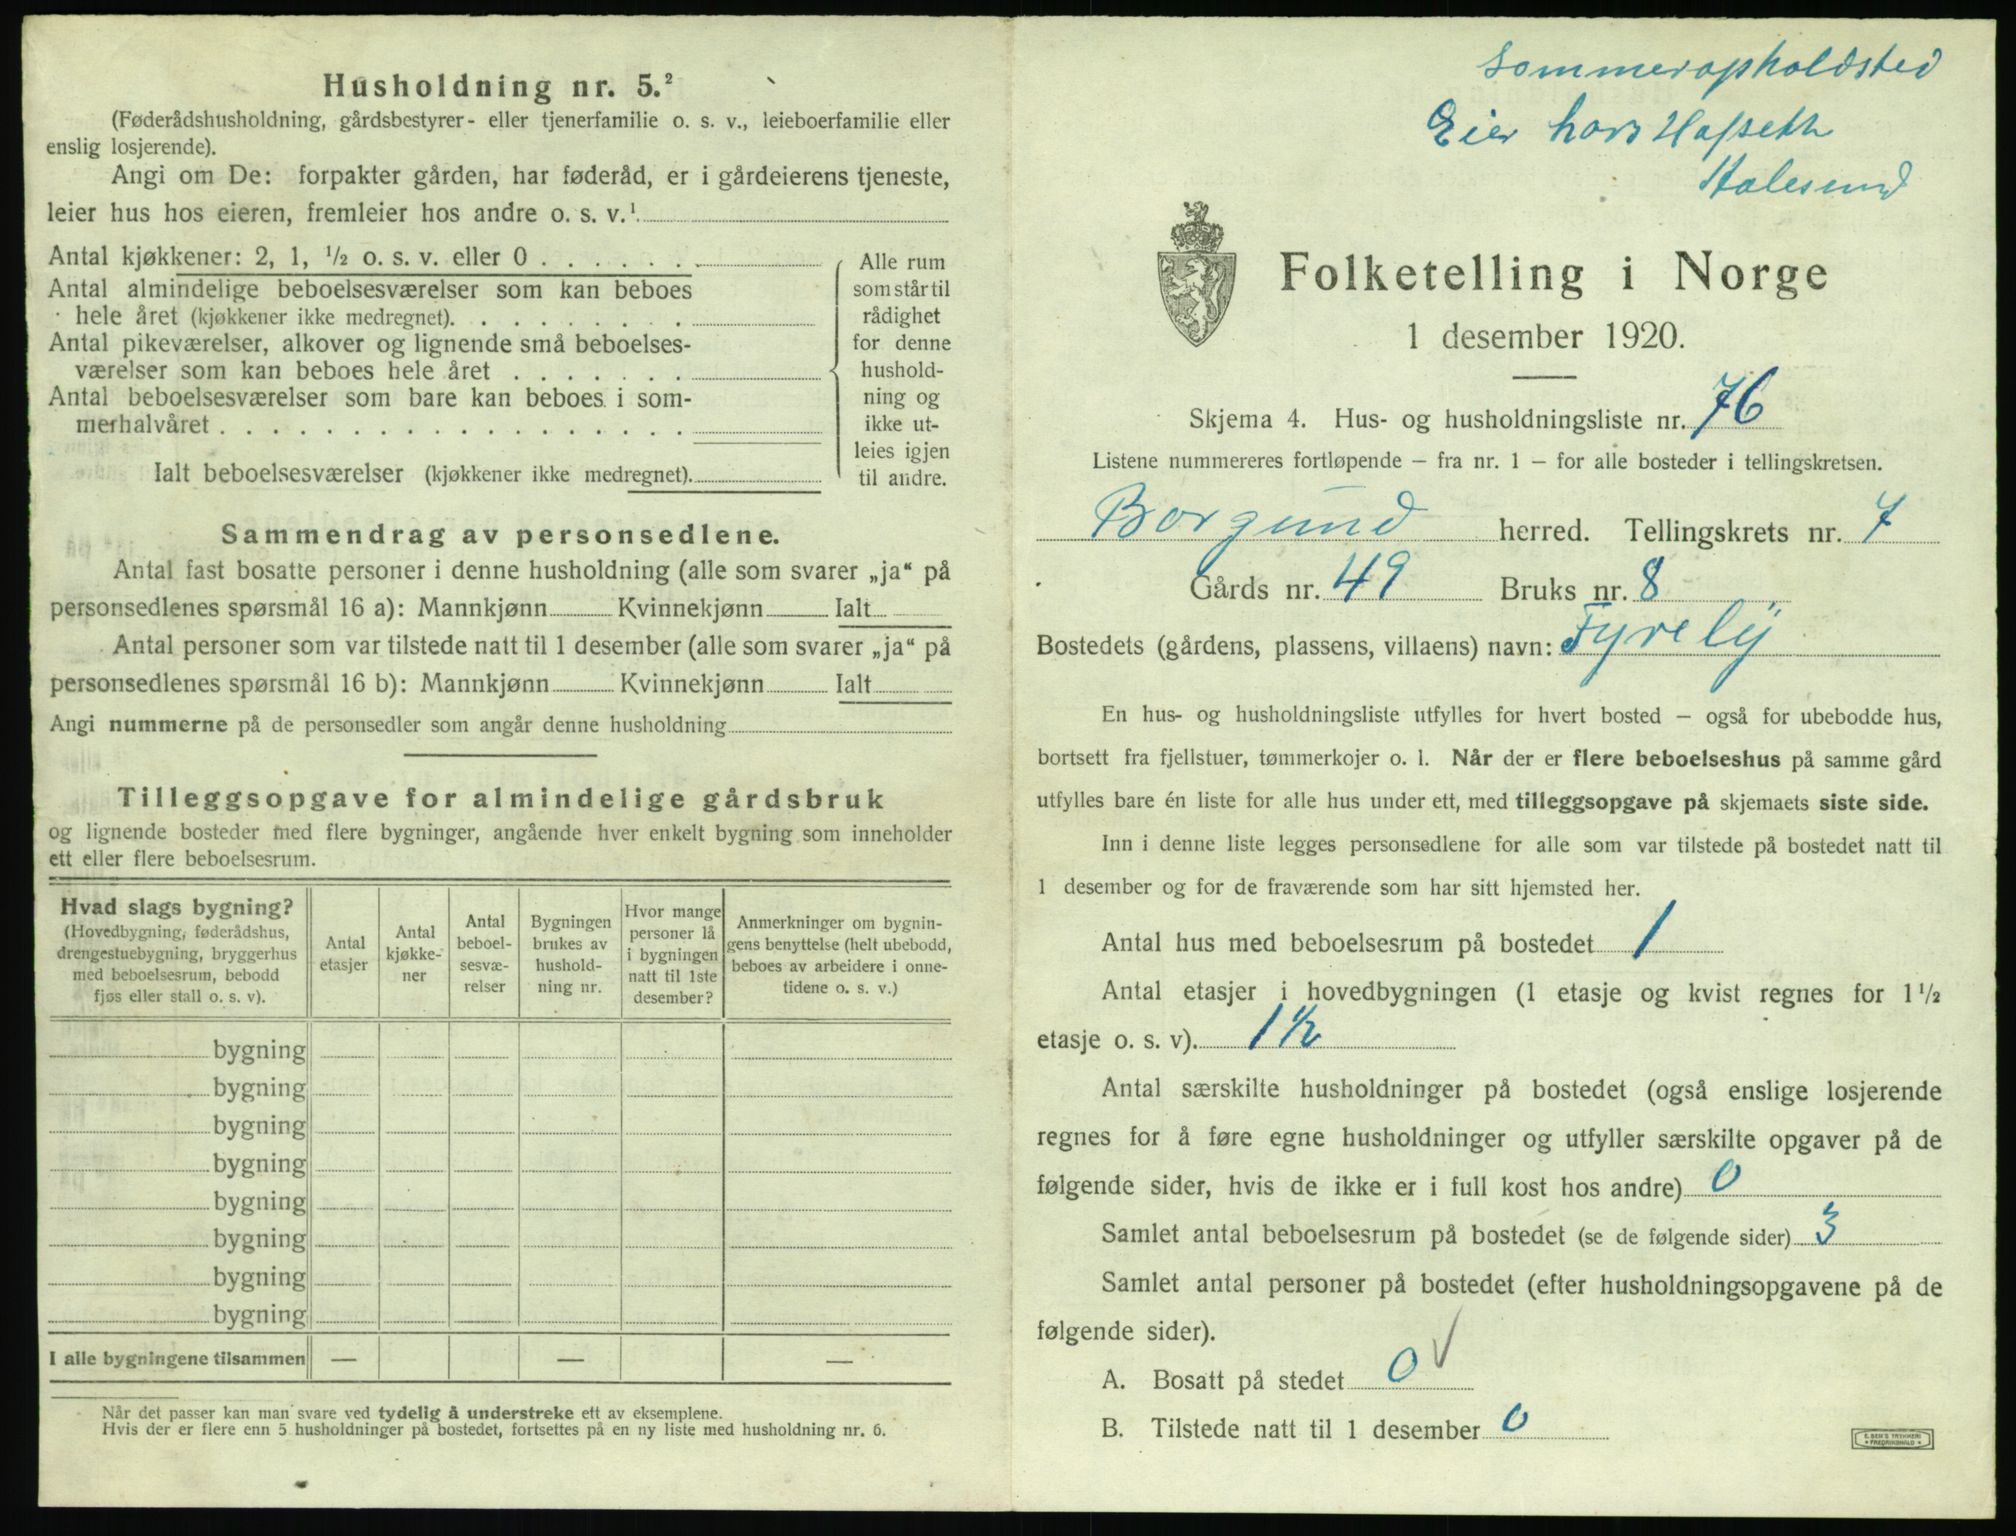 Husholdning nr. 5.²
(Føderådshusholdning, gårdsbestyrer- eller tjenerfamilie o. s. v., leieboerfamilie eller
enslig losjerende).
Angi om De: forpakter gården, har føderåd, er i gårdeierens tjeneste,
leier hus hos eieren, fremleier hos andre o. s. v.¹
Antal kjøkkener: 2, 1, ½ o. s. v. eller 0 . . . . . .
Antal almindelige beboelsesværelser som kan beboes
hele året (kjøkkener ikke medregnet). . . . . . . . .
Antal pikeværelser, alkover og lignende små beboelses-
værelser som kan beboes hele året . . . . . . .
Antal beboelsesværelser som bare kan beboes i som-
merhalvåret . . . . . . . . . . . . . . . . . .
Ialt beboelsesværelser (kjøkkener ikke medregnet).
Alle rum
som står til
rådighet
for denne
hushold-
ning og
ikke ut-
leies igjen
til andre.
Sammendrag av personsedlene.
Antal fast bosatte personer i denne husholdning (alle som svarer „ja“ på
personsedlenes spørsmål 16 a): Mannkjønn Kvinnekjønn Ialt
Antal personer som var tilstede natt til 1 desember (alle som svarer „ja“ på
personsedlenes spørsmål 16 b): Mannkjønn Kvinnekjønn Ialt
Angi nummerne på de personsedler som angår denne husholdning
Tilleggsopgave for almindelige gårdsbruk
og lignende bosteder med flere bygninger, angående hver enkelt bygning som inneholder
ett eller flere beboelsesrum.
Hvad slags bygning?
(Hovedbygning, føderådshus,
drengestuebygning, bryggerhus
med beboelsesrum, bebodd
fjøs eller stall o. s. v).
Antal
etasjer
Antal
kjøkke-
ner
Antal
beboel-
sesvæ-
relser
Bygningen
brukes av
hushold-
ning nr.
Hvor mange
personer lå
i bygningen
natt til 1ste
desember?
Anmerkninger om bygnin-
gens benyttelse (helt ubebodd,
beboes av arbeidere i onne-
tidene o. s. v.)
bygning
bygning
bygning
bygning
bygning
bygning
bygning
bygning
I alle bygningene tilsammen — — —
Når det passer kan man svare ved tydelig å understreke ett av eksemplene.
Hvis der er flere enn 5 husholdninger på bostedet, fortsettes på en ny liste med husholdning nr. 6.
Sommeropholdsted
Eier Lars Hapseth
Aalesund
Folketelling i Norge
1 desember 1920.
Skjema 4. Hus- og husholdningsliste nr. 76
Listene nummereres fortløpende – fra nr. 1 – for alle bosteder i tellingskretsen.
Borgund herred. Tellingskrets nr. 7
Gårds nr. 49 Bruks nr. 8
Bostedets (gårdens, plassens, villaens) navn: Fyrely
En hus- og husholdningsliste utfylles for hvert bosted – også for ubebodde hus,
bortsett fra fjellstuer, tømmerkojer o. l. Når der er flere beboelseshus på samme gård
utfylles bare én liste for alle hus under ett, med tilleggsopgave på skjemaets siste side.
Inn i denne liste legges personsedlene for alle som var tilstede på bostedet natt til
1 desember og for de fraværende som har sitt hjemsted her.
Antal hus med beboelsesrum på bostedet 1
Antal etasjer i hovedbygningen (1 etasje og kvist regnes for 1½
etasje o. s. v). 1½
Antal særskilte husholdninger på bostedet (også enslige losjerende
regnes for å føre egne husholdninger og utfyller særskilte opgaver på de
følgende sider, hvis de ikke er i full kost hos andre) 0
Samlet antal beboelsesrum på bostedet (se de følgende sider) 3
Samlet antal personer på bostedet (efter husholdningsopgavene på de
følgende sider).
A. Bosatt på stedet 0 √
B. Tilstede natt til 1 desember 0